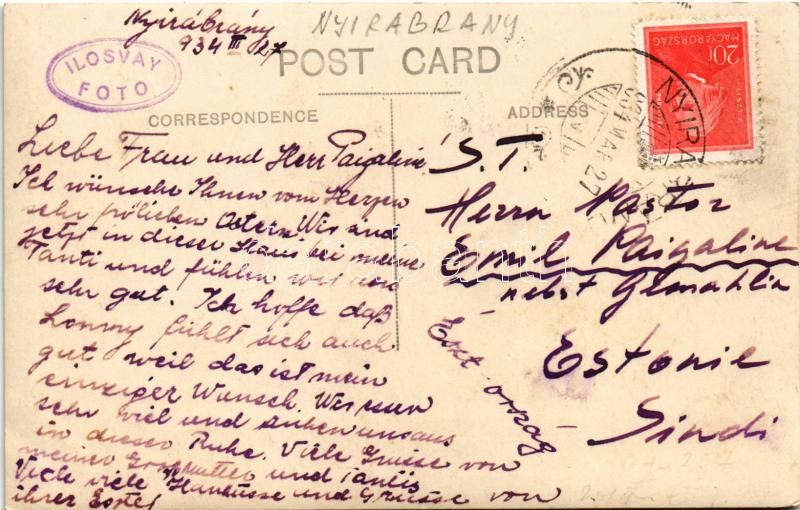 Nyirábrány
934 III 27
NYIRABRANY
ILOSVAY
FOTO
POST CARD
CORRESPONDENCE
ADDRESS
20f
MAGYARORSZÁG
LISZT F.
NYIRÁBRÁNY
934 MAR 27
Liebe Frau und Herr Paigaline!
Ich wünsche Ihnen vom Herzen
sehr frölichen Ostern. Wir sind
jetzt in dieser Haus bei meine
Tanti und fühlen
sehr gut. Ich hoffe daß
Lonny fühlt sich auch
gut weil das ist mein
einziger Wunsch. Wir essen
sehr viel und ruhen uns aus
in dieser Ruhe. Viele Grüsse von
meiner Grossmutter und Tantis
Viele viele Handküsse und Grüsse von
ihrer
S. T.
Herrn Pastor
Emil Paigaline
nebst Gemahlin
Estonie
Sindi
Észt-ország